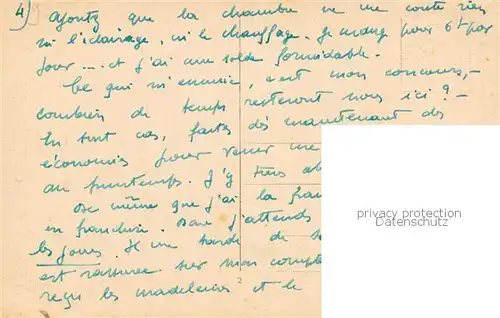 4) Ajoutez que la chambre ne me coute rien
ni l'éclairage, ni le chauffage. Je mange pour 6f par
jour ... et j'ai une solde formidable.
Ce qui m'ennuie, c'est mon concours, -
combien de temps resterons nous ici? -
En tout cas, faites dès maintenant des
économies pour venir me
au printemps. J'y tiens ab
De même que j'ai la fran
en franchise. Donc j'attends
les jours.
est rassurée sur mon compte
reçu les madeleines et le
privacy protection
AnsichtskartenCenter.com
2